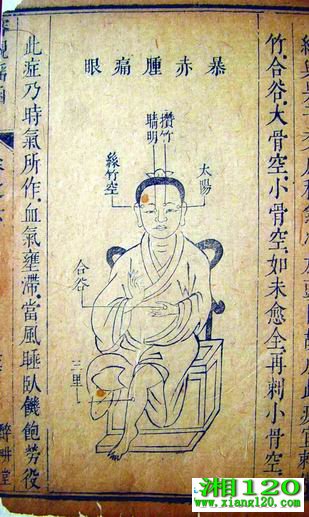 竹.合谷.大骨空.小骨空.如未愈全.再刺小骨空.
暴赤腫痛眼
太陽
攢竹
睛明
絲竹空
合谷
三里
此症乃時氣所作.血氣壅滯.當風睡臥饑飽勞役
醉畊堂
湘120
www.xiang120.com